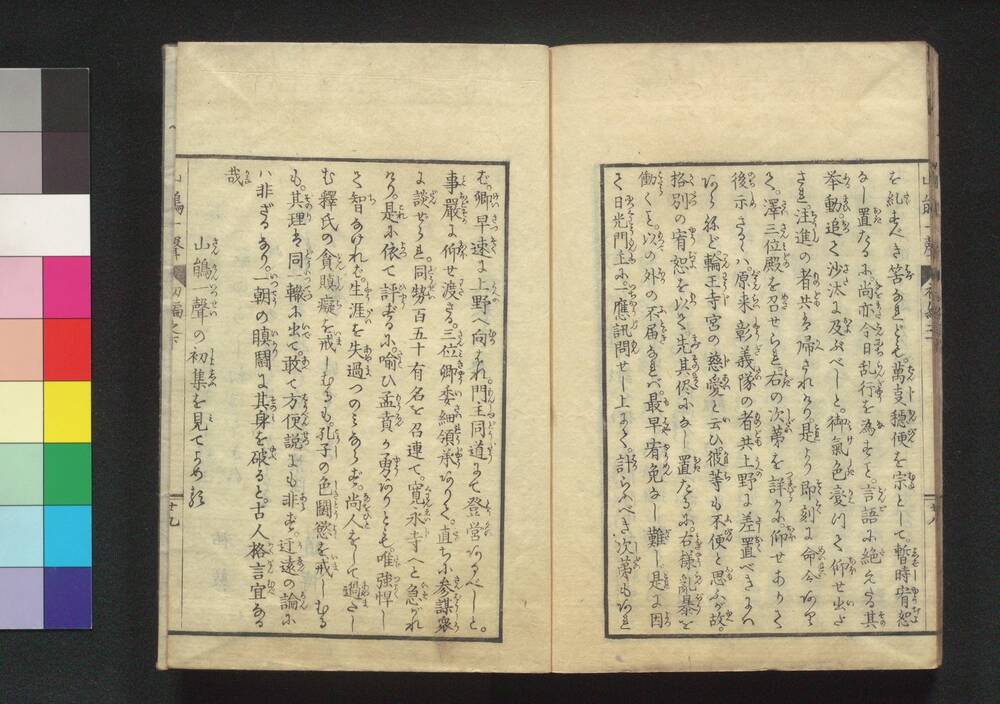 を糺すべき筈なれども。萬支穏便を宗として。暫時宥恕
なし置たるに尚亦今日乱行を為す条。言語に絶えたる其
挙動追て沙汰に及ぶべしと。御氣色変りて仰せ出ださ
され。注進の者共は帰されけり是より即刻に命令ありて
澤三位殿を召せられ。右の次第を詳かに仰せありて
後示さるゝハ。原来彰義隊の者共上野に差置べきまハ
あらねど輪王寺宮の慈愛と云ひ彼等も不便と思ふが故。
格別の宥恕を以て。先其侭になし置たるに。右様乱暴を
働くこと。以の外の不届なれバ。最早宥免なし難し是に因
て日光門主に。一應訊問せし上にて。計らふべき次第もあれ
ば。卿早速に上野へ向はれ。門主同道にて登営あるべしと。
事厳に仰せ渡さる。三位卿委細領承ありて。直ちに参謀衆
に談ぜられ。同勢百五十有名を召連て。寛永寺へと急がれ
けり。是に依て評するに。喩ひ孟賁が勇ありとも。唯強悍し
て智なければ生涯を失過つのミならず。尚人をして過たし
む釋氏の貪瞋癡を戒しむるも。孔子の色闘慾を戒しむる
も。其理は同轍に出て。敢て方便説にも非ず。迂遠の論に
ハ非ざるなり。一朝の瞋闘に其身を破ると。古人格言宜なる
哉
山鵑一聲の初集を見てよめる
山鵑一聲
初編之下
廿九
廿八